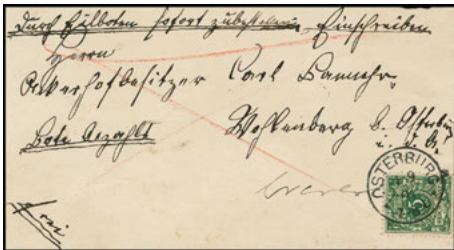 Durch Eilboten sofort zubestellen Einschreiben
Herrn
Ackerhofbesitzer Carl
Bote bezahlt
Wohlenberg b. Osterburg
frei
OSTERBURG
5